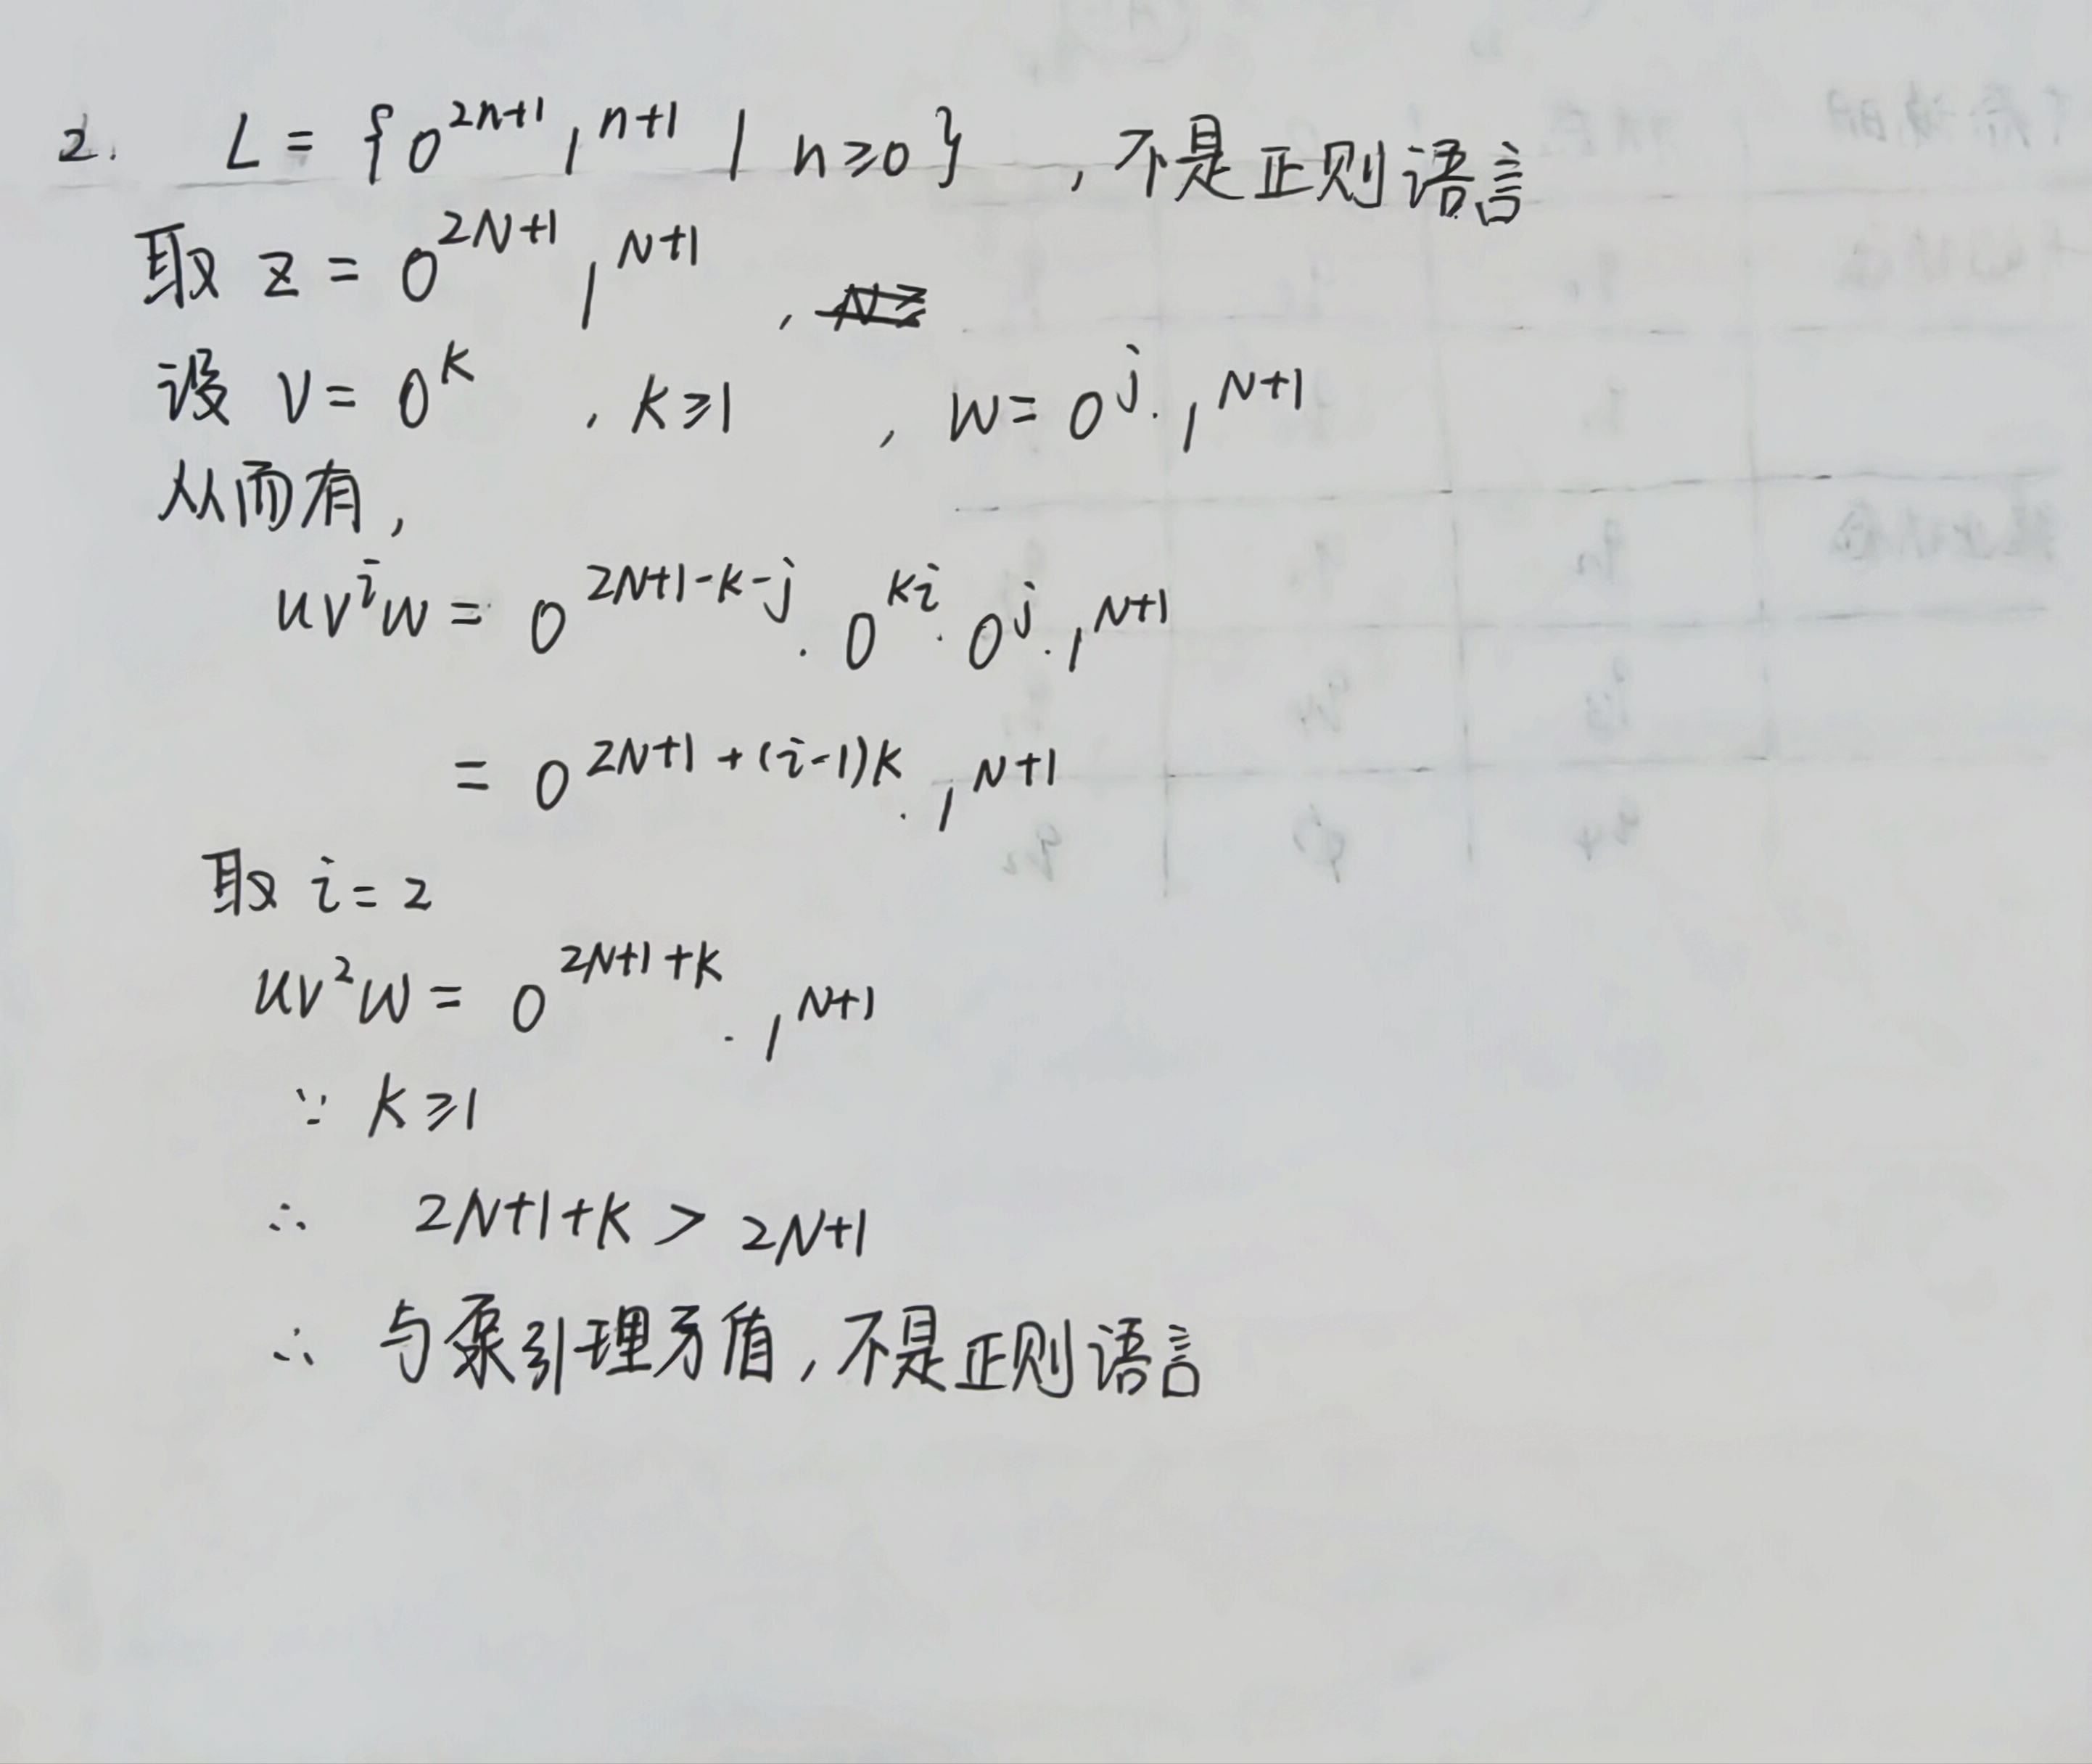 2. L = {0^{2n+1} 1^{n+1} | n≥0} , 不是正则语言
取 z = 0^{2N+1} 1^{N+1} ,
设 v = 0^k , k≥1 , w = 0^j · 1^{N+1}
从而有,
uv^i w = 0^{2N+1-k-j} · 0^{ki} · 0^j · 1^{N+1}
= 0^{2N+1+(i-1)k} · 1^{N+1}
取 i = 2
uv^2 w = 0^{2N+1+k} · 1^{N+1}
∵ k≥1
∴ 2N+1+k > 2N+1
∴ 与泵引理矛盾, 不是正则语言